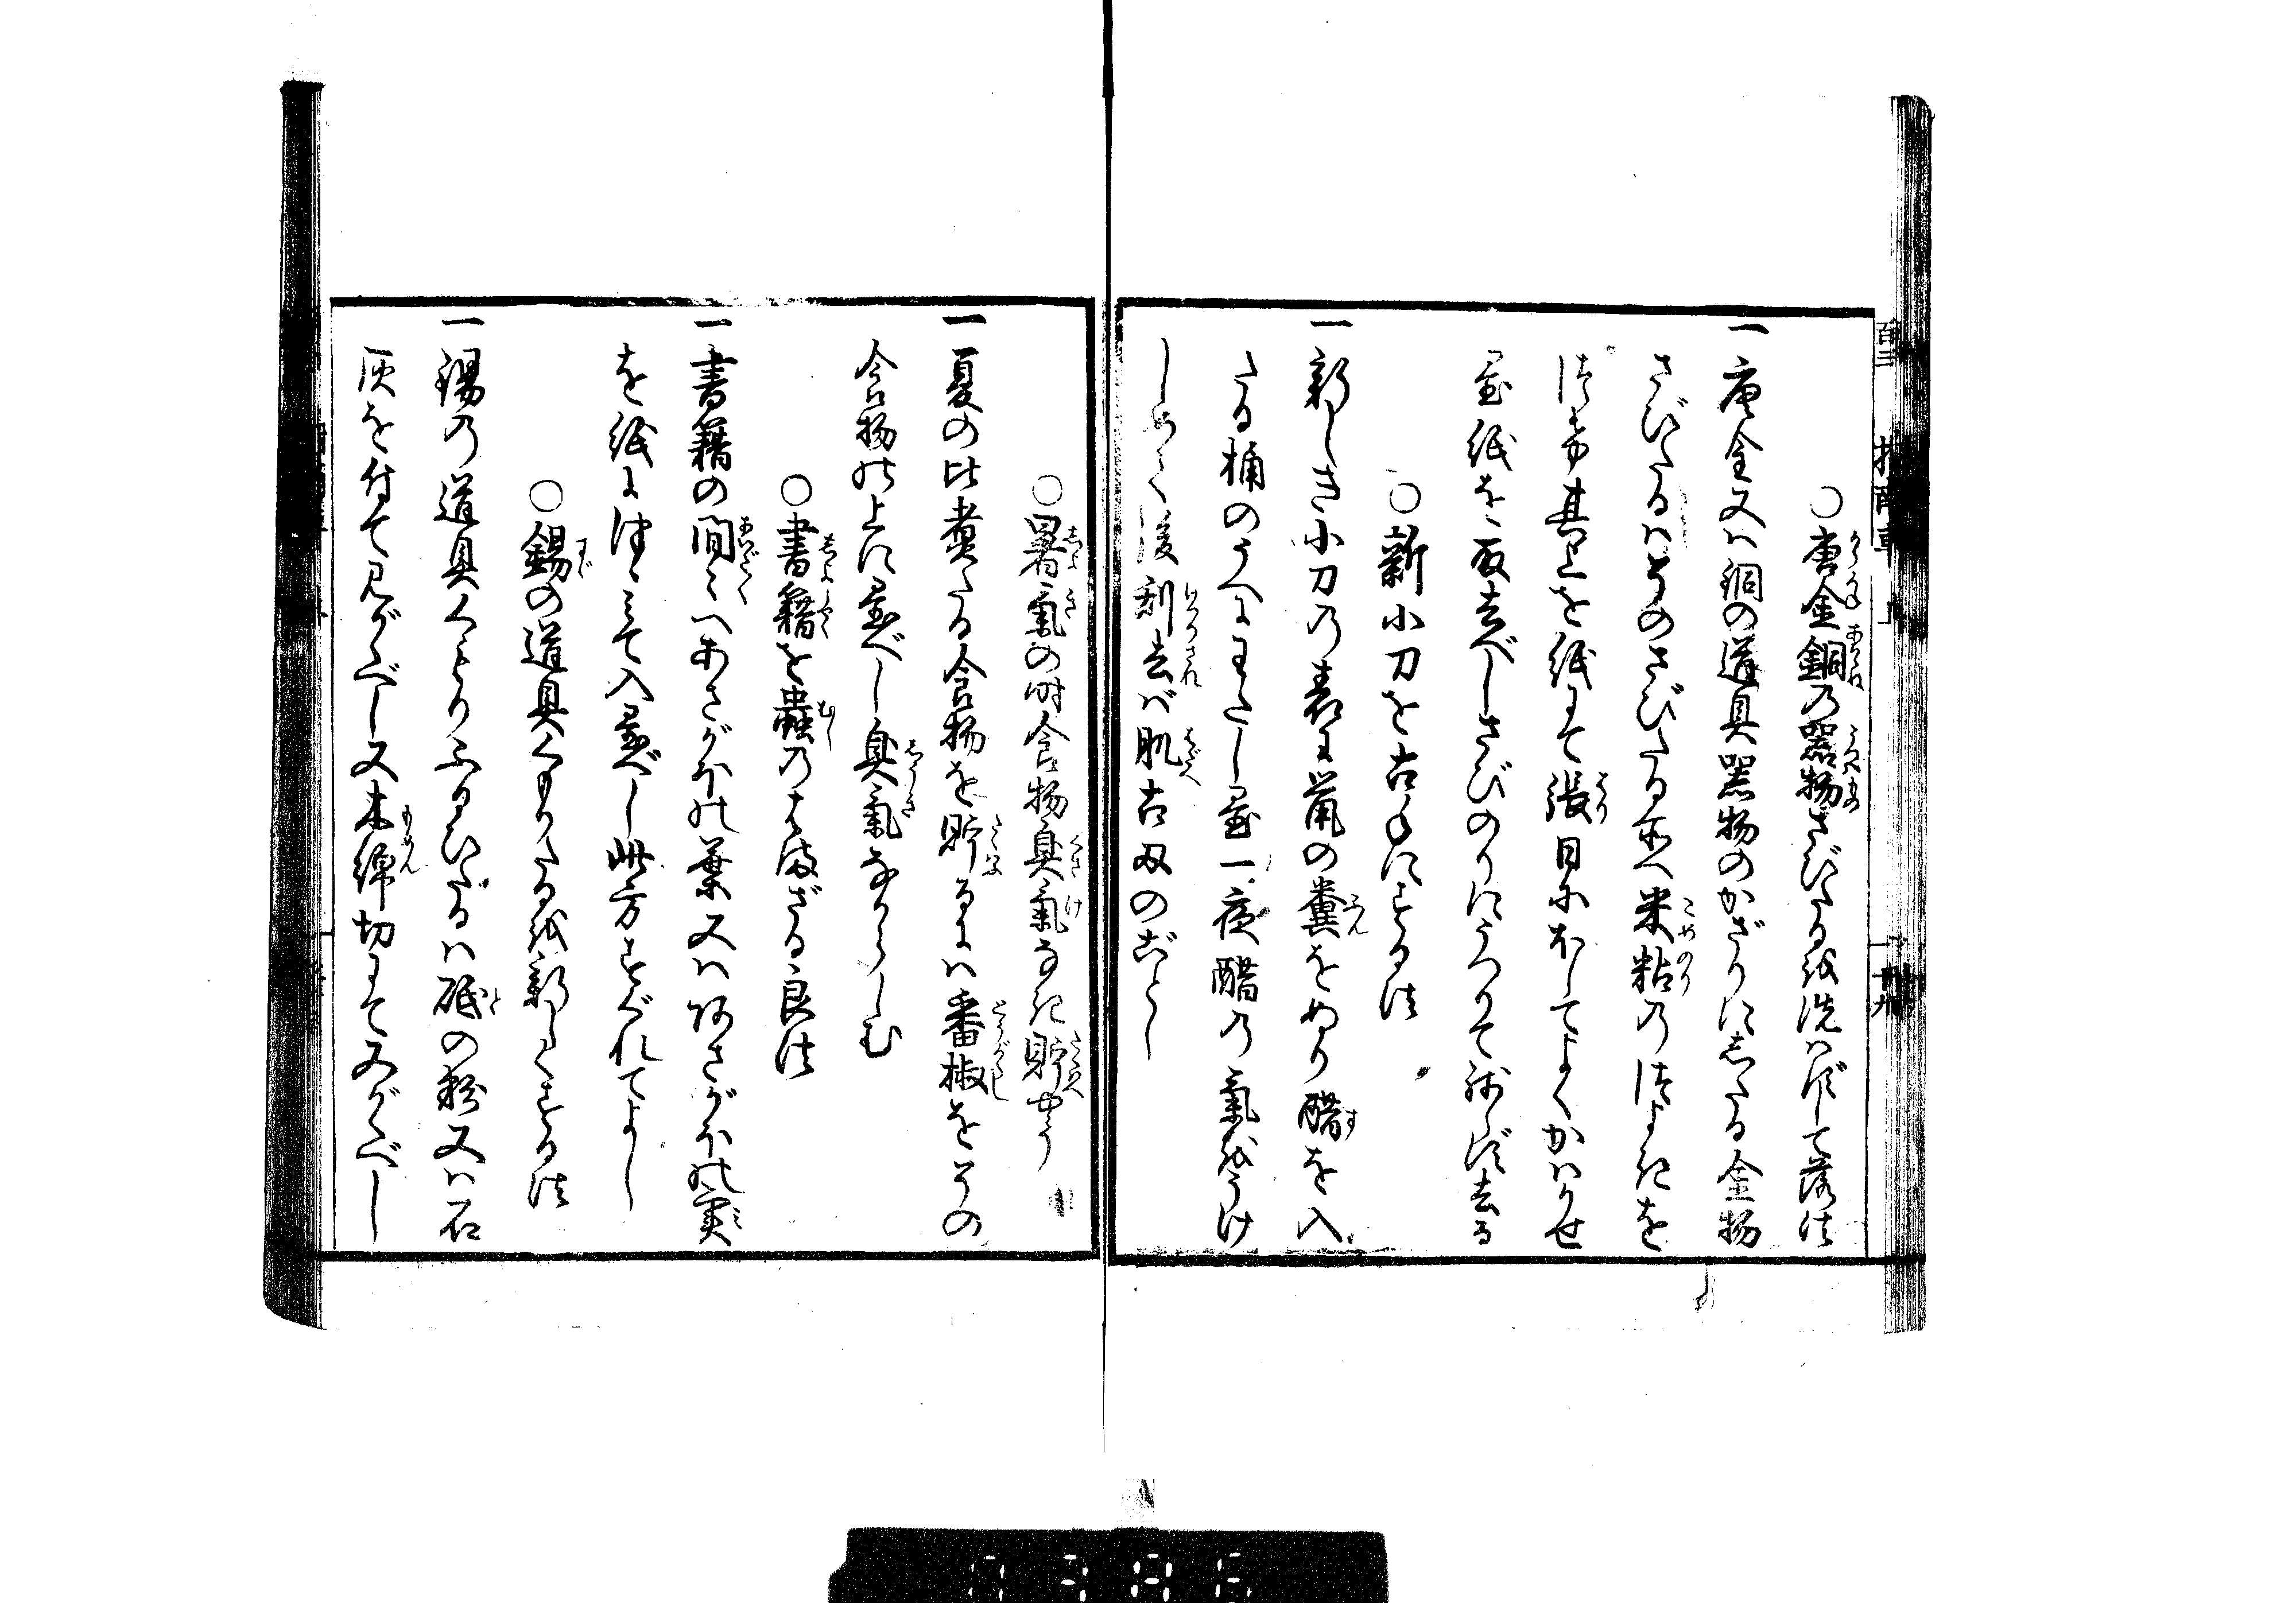 ○唐金銅の器物さびたるを洗はずして落法
一唐金又ハ銅の道具器物のかざりにしたる金物
さびたるハそのさびたる所へ米粘のつよきを
つけ其上を紙にて張日にほしてよくかハかせ
置紙を取去べしさびのりにうつりて残らず去る
○新小刀を古身にする法
一新しき小刀の表に鼠の糞をぬり醋を入
たる桶のうへにわたし置一夜醋の氣をうけ
しめて後利去バ肌古刄のごとし
○暑氣の時食物臭氣なき貯やう
一夏の比煮たる食物を貯るにハ番椒をその
食物の上に置べし臭氣なからしむ
○書籍を蟲のはまざる良法
一書籍の間〻へあさがほの葉又ハあさがほの実
を紙につゝみて入置べし此方すぐれてよし
○錫の道具くもりたるを新しくする法
一錫の道具くもりふるびたるハ砥の粉又ハ石
灰を付て見がくべし又木綿切にてみがくべし